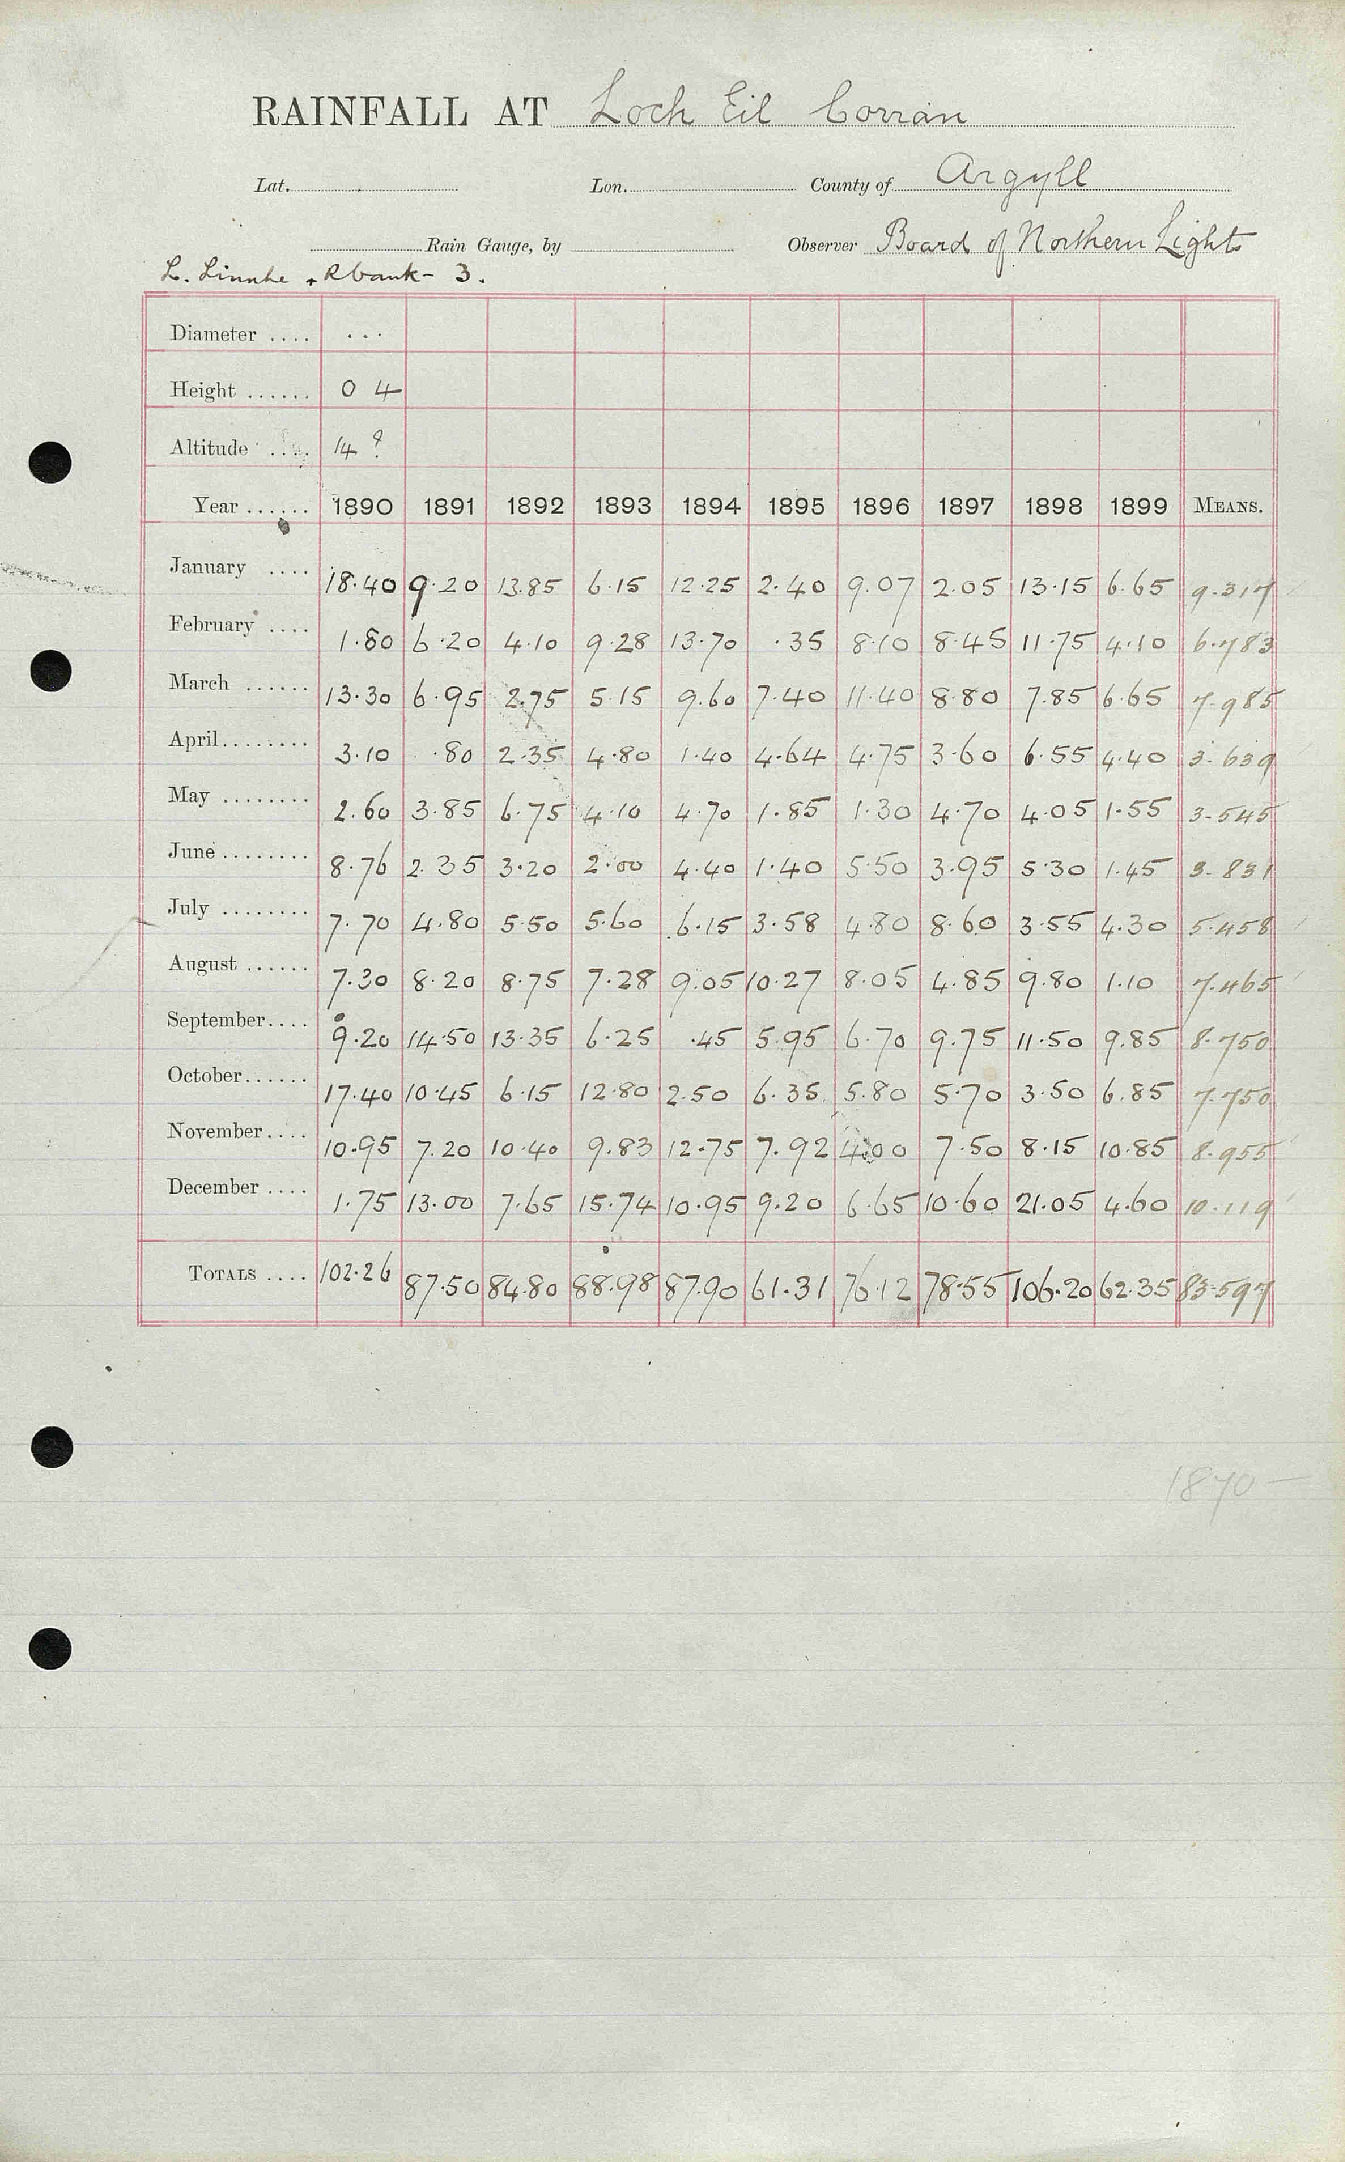 RAINFALL AT Loch Eil Corran
Lat. Lon. County of Argyll
Rain Gauge, by Observer Board of Northern Light
L. Linnhe + Rbank - 3.
Diameter .... ...
Height ...... 0 4
Altitude .... 14 ?
Year ...... 1890 1891 1892 1893 1894 1895 1896 1897 1898 1899 MEANS.
January .... 18.40 9.20 13.85 6.15 12.25 2.40 9.07 2.05 13.15 6.65 9.317
February .... 1.80 6.20 4.10 9.28 13.70 .35 8.10 8.45 11.75 4.10 6.783
March ...... 13.30 6.95 2.75 5.15 9.60 7.40 11.40 8.80 7.85 6.65 7.985
April........ 3.10 .80 2.35 4.80 1.40 4.64 4.75 3.60 6.55 4.40 3.639
May ........ 2.60 3.85 6.75 4.10 4.70 1.85 1.30 4.70 4.05 1.55 3.545
June ........ 8.76 2.35 3.20 2.00 4.40 1.40 5.50 3.95 5.30 1.45 3.831
July ........ 7.70 4.80 5.50 5.60 6.15 3.58 4.80 8.60 3.55 4.30 5.458
August ...... 7.30 8.20 8.75 7.28 9.05 10.27 8.05 4.85 9.80 1.10 7.465
September.... 9.20 14.50 13.35 6.25 .45 5.95 6.70 9.75 11.50 9.85 8.750
October...... 17.40 10.45 6.15 12.80 2.50 6.35 5.80 5.70 3.50 6.85 7.750
November.... 10.95 7.20 10.40 9.83 12.75 7.92 4.00 7.50 8.15 10.85 8.955
December .... 1.75 13.00 7.65 15.74 10.95 9.20 6.65 10.60 21.05 4.60 10.119
TOTALS .... 102.26 87.50 84.80 88.98 87.90 61.31 76.12 78.55 106.20 62.35 83.597
1870 —